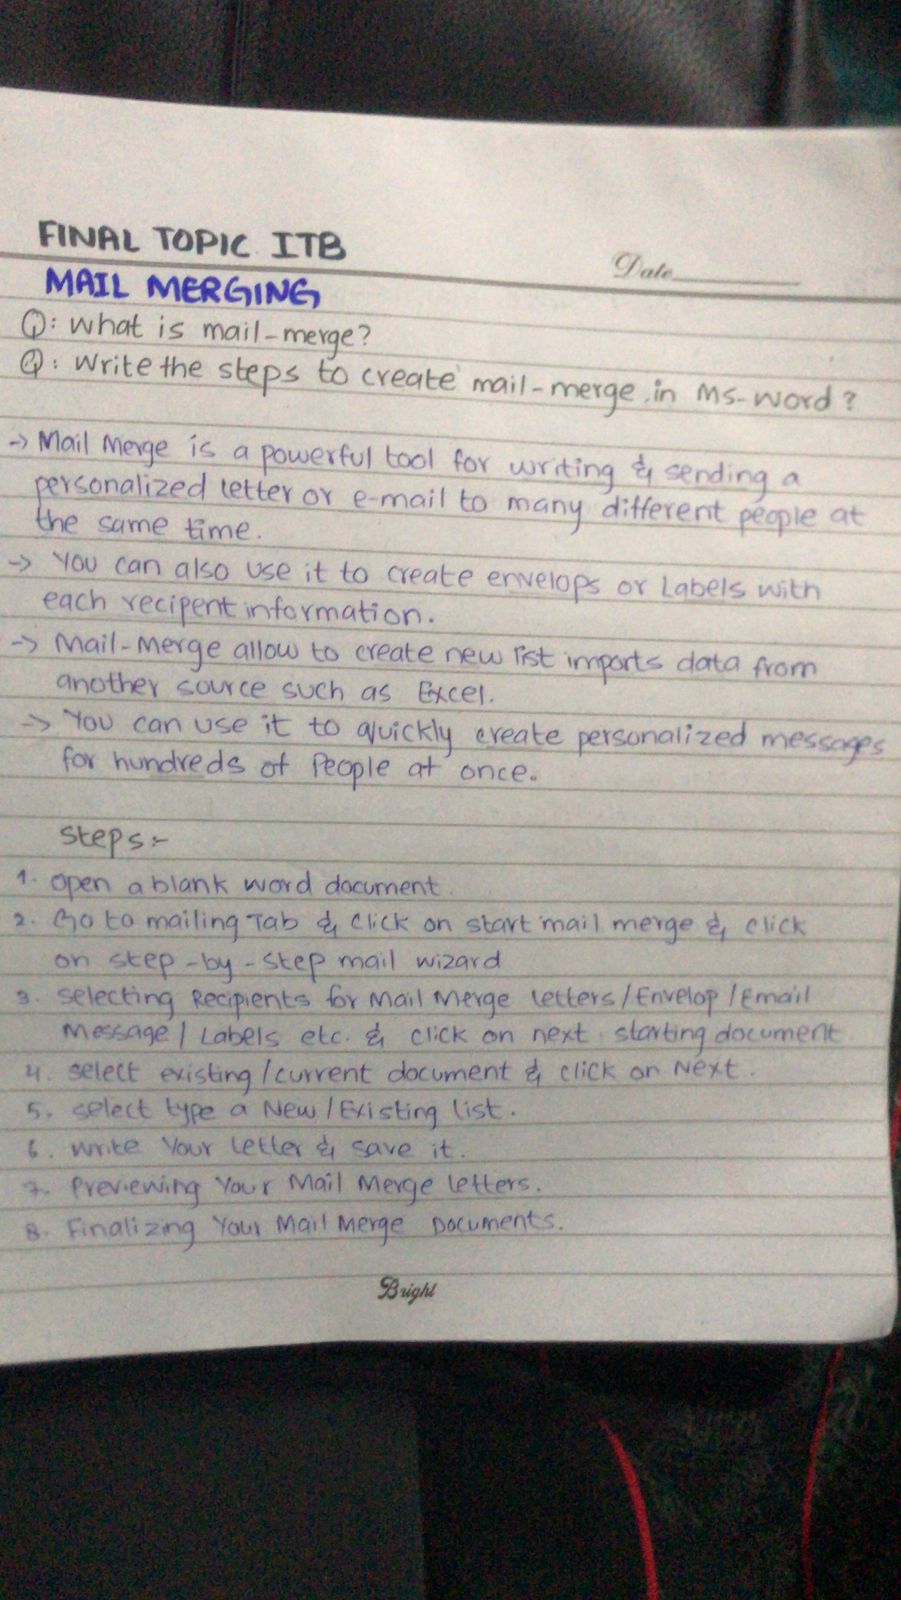 FINAL TOPIC ITB
Date
MAIL MERGING
Q: What is mail-merge?
Q: Write the steps to create mail-merge in Ms-Word?
-> Mail Merge is a powerful tool for writing & sending a
personalized letter or e-mail to many different people at
the same time.
-> You can also use it to create envelops or Labels with
each recipent information.
-> Mail-Merge allow to create new list imports data from
another source such as Excel.
-> You can use it to quickly create personalized messages
for hundreds of People at once.
Steps:-
1. Open a blank word document.
2. Go to mailing Tab & Click on start mail merge & click
on step-by-step mail wizard
3. Selecting Recipients for Mail Merge Letters/Envelop/Email
Message/Labels etc. & click on next starting document
4. Select existing/current document & click on Next.
5. Select type a New/Existing list.
6. Write Your Letter & save it.
7. Previewing Your Mail Merge letters.
8. Finalizing Your Mail Merge Documents.
Bright